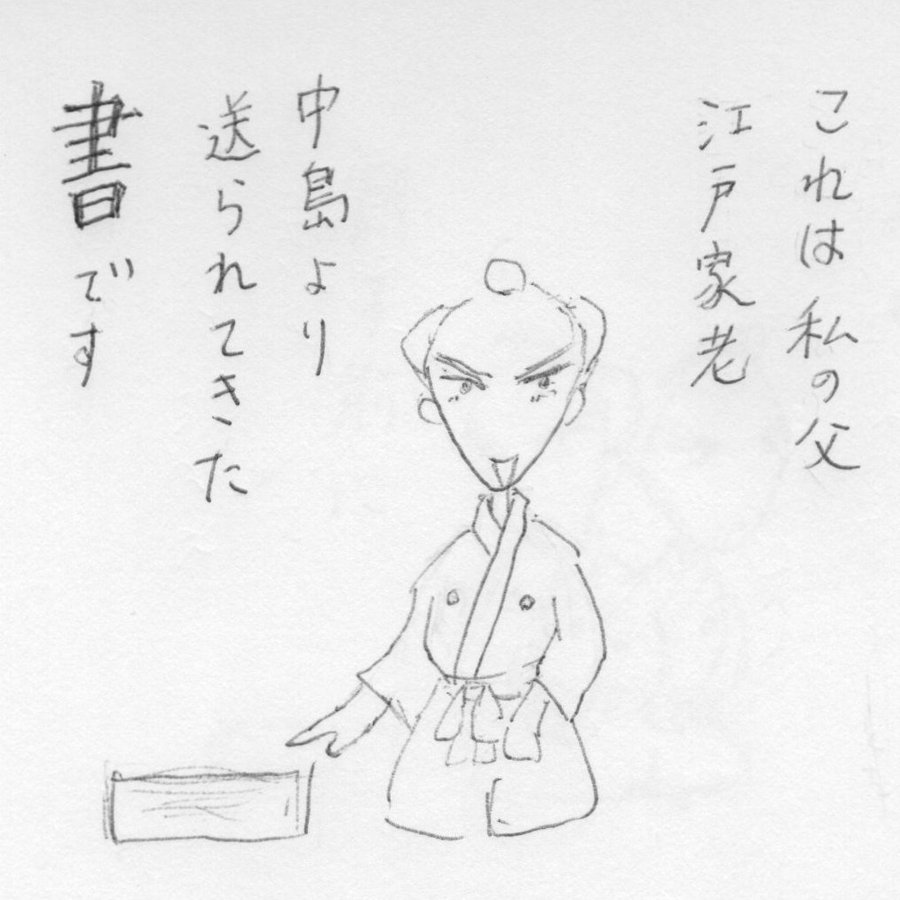 これは私の父
江戸家老
中島より
送られてきた
書です